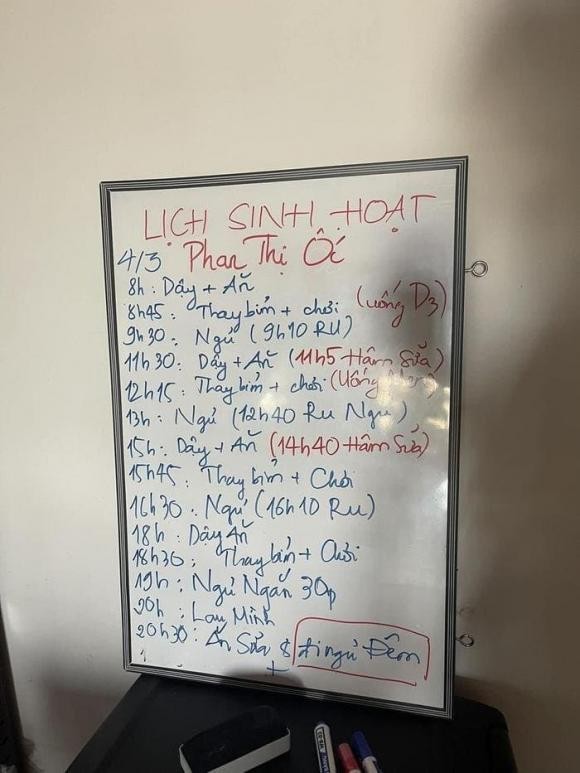 LỊCH SINH HOẠT
4/3 Phan Thị Ốc
8h: Dậy + Ăn
8h45: Thay bỉm + chơi (uống D3)
9h30: Ngủ (9h10 RU)
11h30: Dậy + Ăn (11h5 Hâm Sữa)
12h15: Thay bỉm + chơi (Uống
13h: Ngủ (12h40 Ru Ngủ)
15h: Dậy + Ăn (14h40 Hâm Sữa)
15h45: Thay bỉm + Chơi
16h30: Ngủ (16h10 RU)
18h: Dậy Ăn
18h30: Thay bỉm + Chơi
19h: Ngủ Ngắn 30p
20h: Lau Mình
20h30: Ăn Sữa & đi ngủ Đêm
+